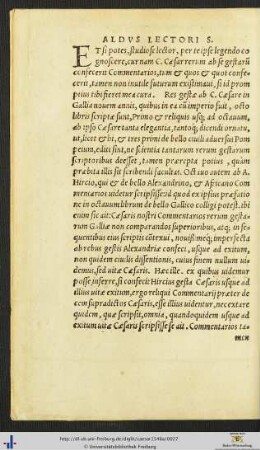 ALDVS LECTORI S.
ET si potes, studiose lector, per te ipse legendo co
gnoscere, cur nam C. Cæsar rerum ab se gestarū
confecerit Commentarios, tum & quos & quot confe
cerit, tamen non inutile futurum existimaui, si id prom
ptius tibi fieret mea cura. Res gestæ ab C. Cæsare in
Gallia nouem annis, quibus in ea cū imperio fuit, octo
libris scriptæ sunt, Primo & reliquis usq; ad octauum,
ab ipso Cæsare tanta elegantia, tantoq; dicendi ornatu,
ut, licet hi, & tres primi de bello ciuili aduersus Pom
peium, editi sint, ne scientia tantarum rerum gestarum
scriptoribus deesset, tamen prærepta potius, quàm
præbita illis sit scribendi facultas. Octauo autem ab A.
Hircio, qui & de bello Alexandrino, & Africano Com
mentarios uidetur scripsisse: id quod ex ipsius præfatio
ne in octauum librum de bello Gallico colligi potest. ibi
enim sic ait: Cæsaris nostri Commentarios rerum gesta
rum Galliæ non comparandos superioribus, atq; in se
quentibus eius scriptis cōtexui, nouissimeq; imperfecta
ab rebus gestis Alexandriæ confeci, usque ad exitum,
non quidem ciuilis dissentionis, cuius finem nullum ui
demus, sed uitæ Cæsaris. Hæc ille. ex quibus uidemur
posse inferre, si confecit Hircius gesta C. Cæsaris ad
illius uitæ exitum, ergo reliqui Commentarij præter de
cem supradictos Cæsaris, esse illius uidentur, nec extare
quidem, quæ scripsit, omnia, quandoquidem usque ad
exitum uitæ Cæsaris scripsisse se ait. Commentarios ta-
men
http://dl.ub.uni-freiburg.de/diglit/caesar1546ac/0007
© Universitätsbibliothek Freiburg